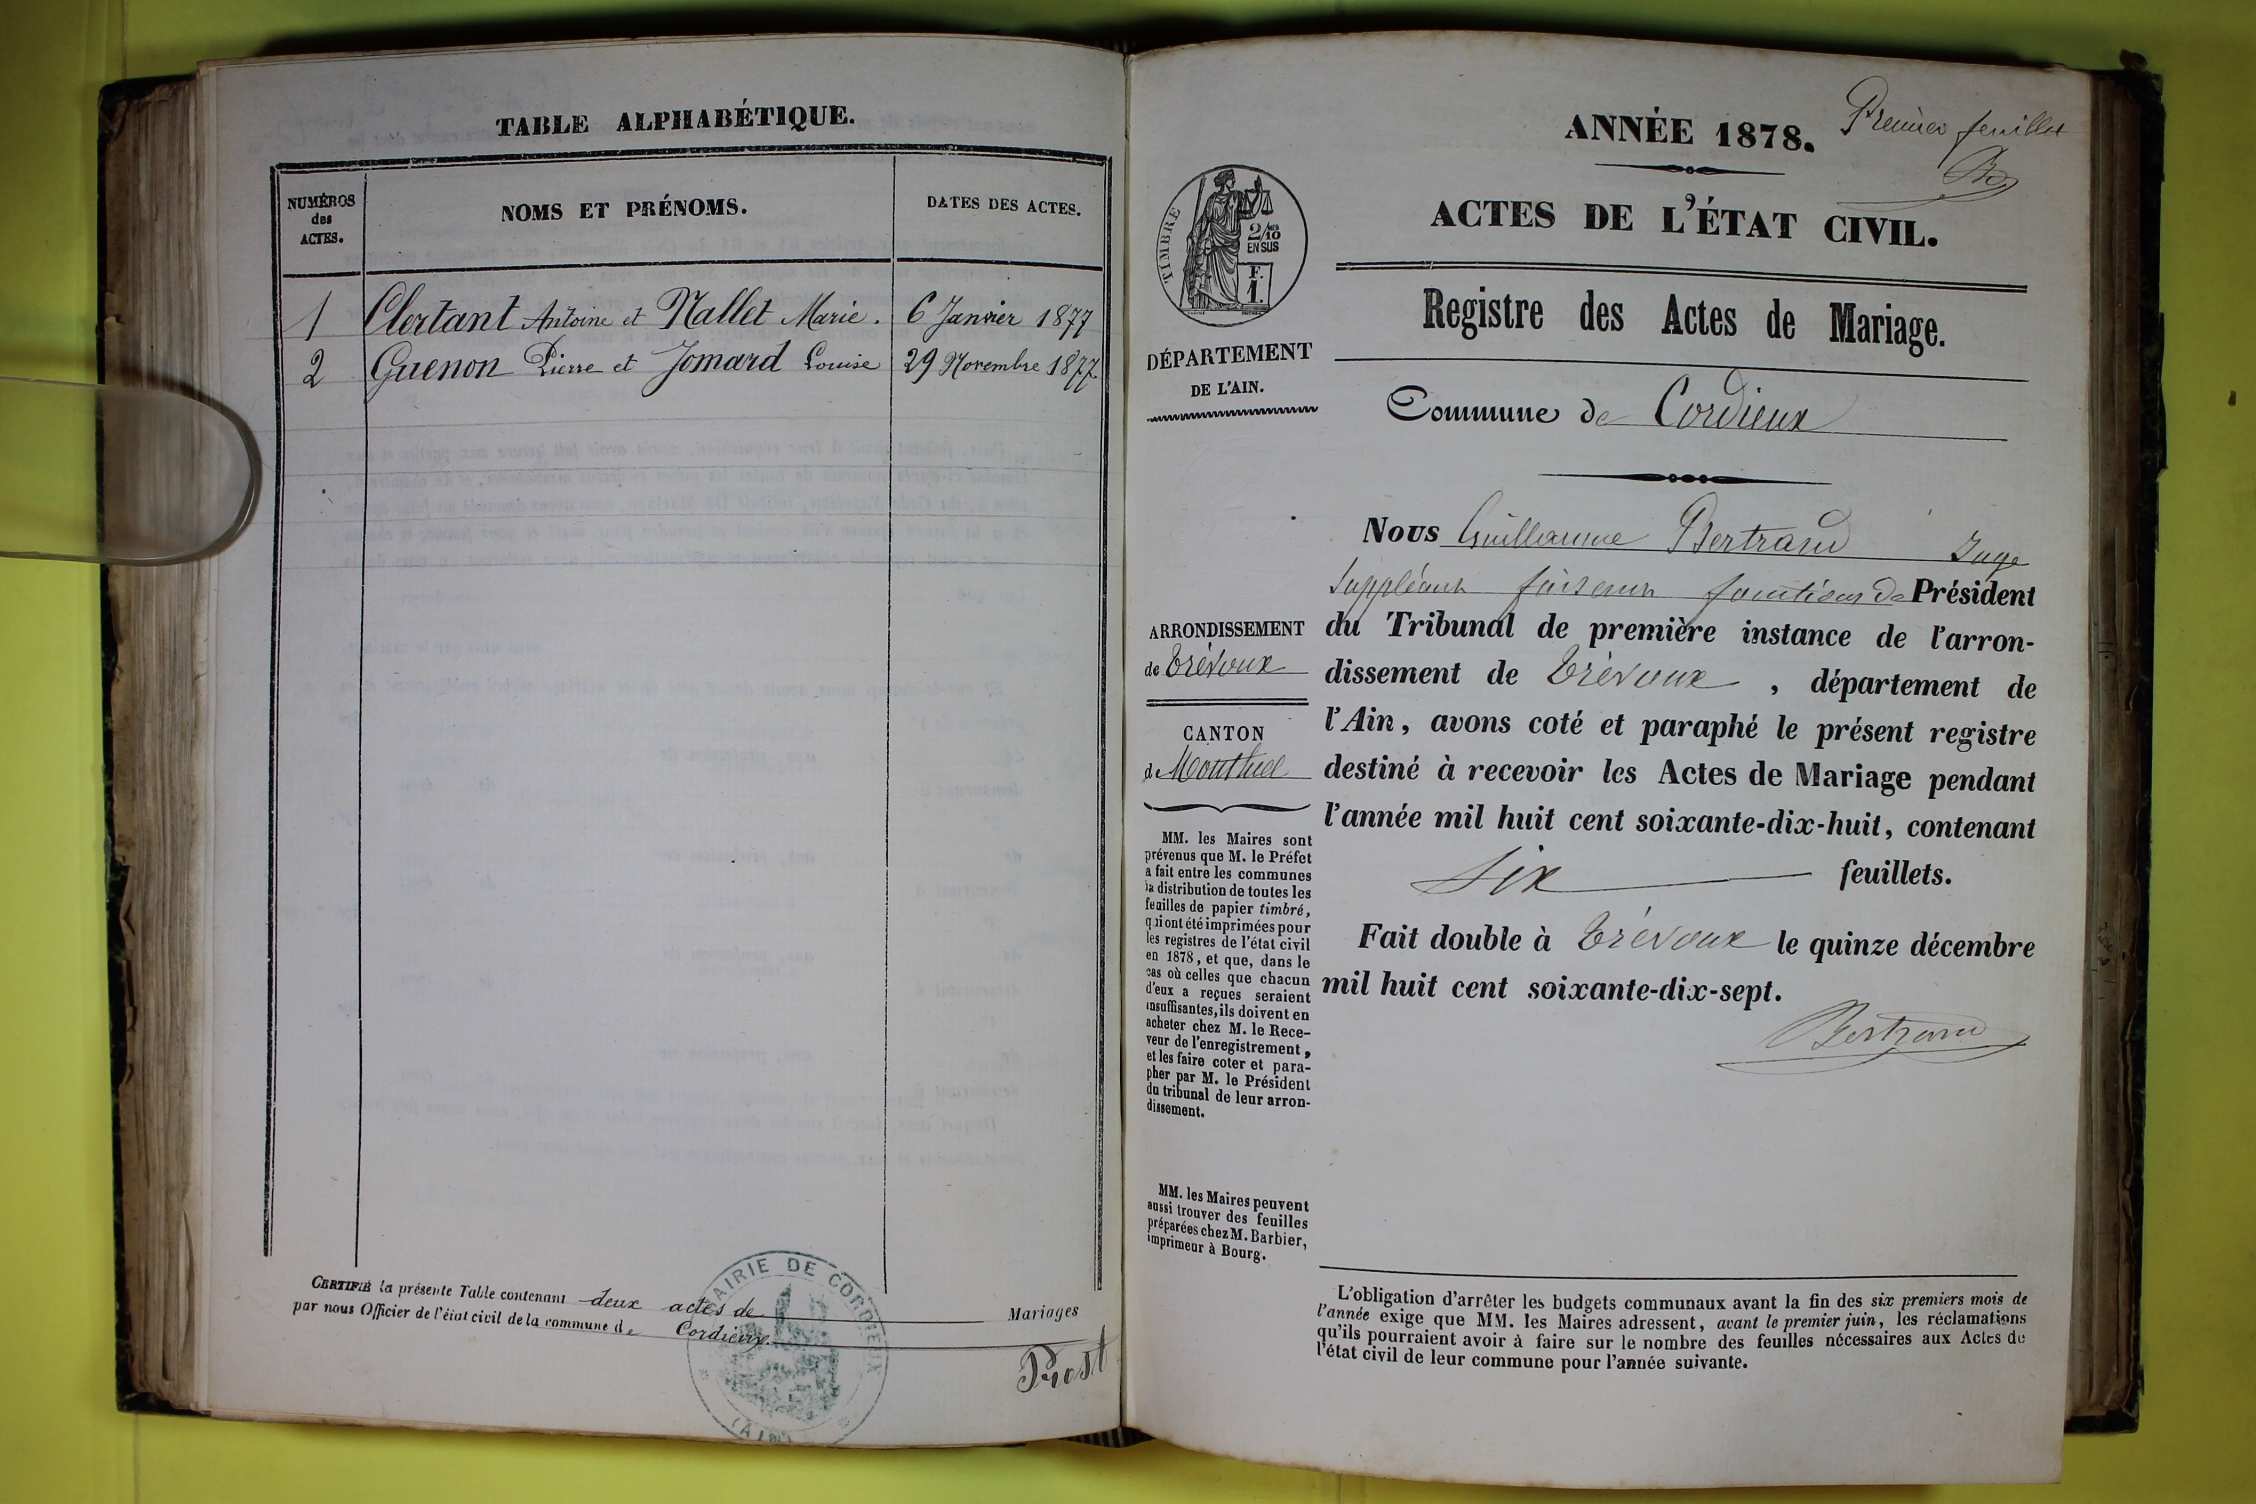 TABLE ALPHABÉTIQUE.
NUMÉROS
des
ACTES.
NOMS ET PRÉNOMS.
DATES DES ACTES.
1 Clertant Antoine et Nallet Marie. 6 Janvier 1877
2 Guenon Pierre et Jomard Louise 29 Novembre 1877
CERTIFIÉ la présente Table contenant deux actes de Mariages
par nous Officier de l'état civil de la commune de Cordieux
Prost
MAIRIE DE CORDIEUX
(AIN)
ANNÉE 1878.
Premier feuillet
ACTES DE L'ÉTAT CIVIL.
Registre des Actes de Mariage.
Commune de Cordieux
TIMBRE
2/10
EN SUS
F.
1.
DÉPARTEMENT
DE L'AIN.
ARRONDISSEMENT
de Trévoux
CANTON
de Montluel
MM. les Maires sont
prévenus que M. le Préfet
a fait entre les communes
la distribution de toutes les
feuilles de papier timbré,
qui ont été imprimées pour
les registres de l'état civil
en 1878, et que, dans le
cas où celles que chacun
d'eux a reçues seraient
insuffisantes, ils doivent en
acheter chez M. le Rece-
veur de l'enregistrement,
et les faire coter et para-
pher par M. le Président
du tribunal de leur arron-
dissement.
MM. les Maires peuvent
aussi trouver des feuilles
préparées chez M. Barbier,
imprimeur à Bourg.
Nous Guillaume Bertrand Juge
suppléant faisant fonctions de Président
du Tribunal de première instance de l'arron-
dissement de Trévoux, département de
l'Ain, avons coté et paraphé le présent registre
destiné à recevoir les Actes de Mariage pendant
l'année mil huit cent soixante-dix-huit, contenant
six feuillets.
Fait double à Trévoux le quinze décembre
mil huit cent soixante-dix-sept.
Bertrand
L'obligation d'arrêter les budgets communaux avant la fin des six premiers mois de
l'année exige que MM. les Maires adressent, avant le premier juin, les réclamations
qu'ils pourraient avoir à faire sur le nombre des feuilles nécessaires aux Actes de
l'état civil de leur commune pour l'année suivante.